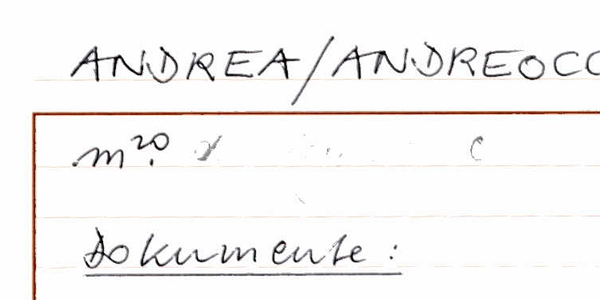 ANDREA/ANDREOCC
m²⁰.
Dokumente: